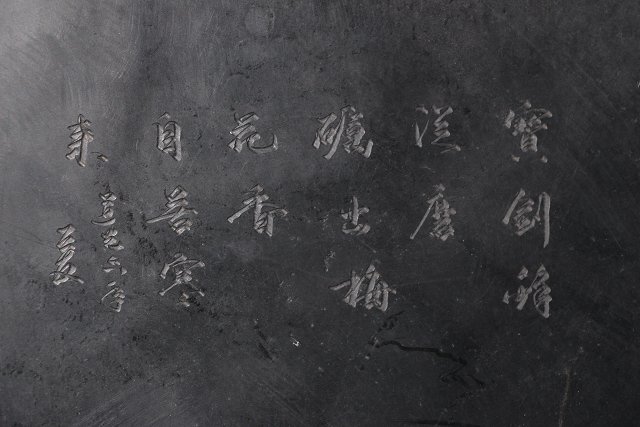 寶劍鋒
從磨
礪出梅
花香
自苦寒
來
道光六年
夏